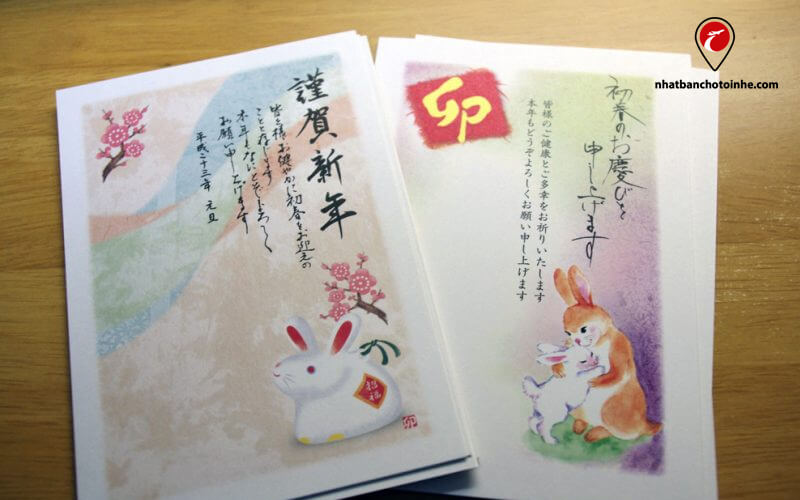 謹賀新年
皆々様お健やかに初春をお迎えの
ことと存じます
本年もなにとぞよろしく
お願い申し上げます
平成二十三年 元旦
招福
卯
卯
初春のお慶びを
申し上げます
皆様のご健康とご多幸をお祈りいたします
本年もどうぞよろしくお願い申し上げます
nhatbanchotoinhe.com